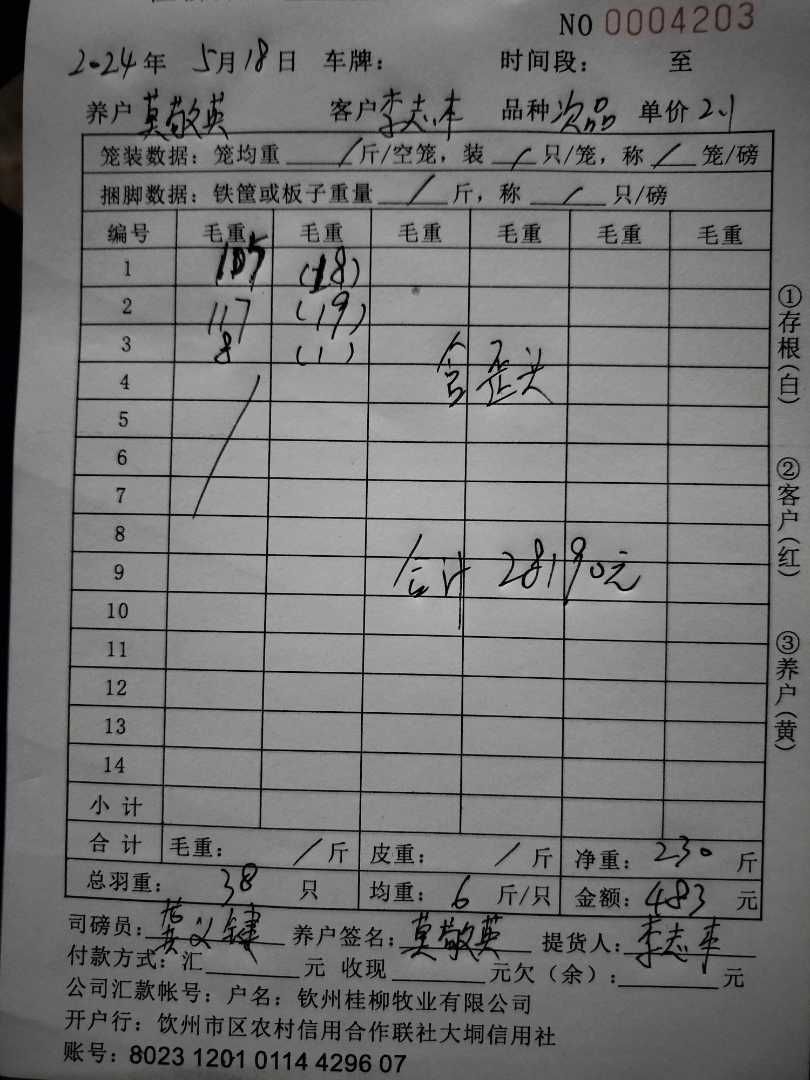 NO 0004203
2024年 5月18日 车牌： 时间段： 至
养户 莫敬英 客户 李志丰 品种 次品 单价 2.1
笼装数据：笼均重 / 斤/空笼，装 / 只/笼，称 / 笼/磅
捆脚数据：铁筐或板子重量 / 斤，称 / 只/磅
编号 毛重 毛重 毛重 毛重 毛重 毛重
1 105 (18)
2 117 (19)
3 8 (1)
含歪头
4
5
6
7
8
9
合计 28190元
10
11
12
13
14
小计
合计 毛重： / 斤 皮重： / 斤 净重：230 斤
总羽重： 38 只 均重：6 斤/只 金额：483 元
司磅员： 养户签名：莫敬英 提货人：李志丰
付款方式：汇 元 收现 元欠（余）： 元
公司汇款帐号：户名：钦州桂柳牧业有限公司
开户行：饮州市区农村信用合作联社大垌信用社
账号：8023 1201 0114 4296 07
①存根(白)
②客户(红)
③养户(黄)